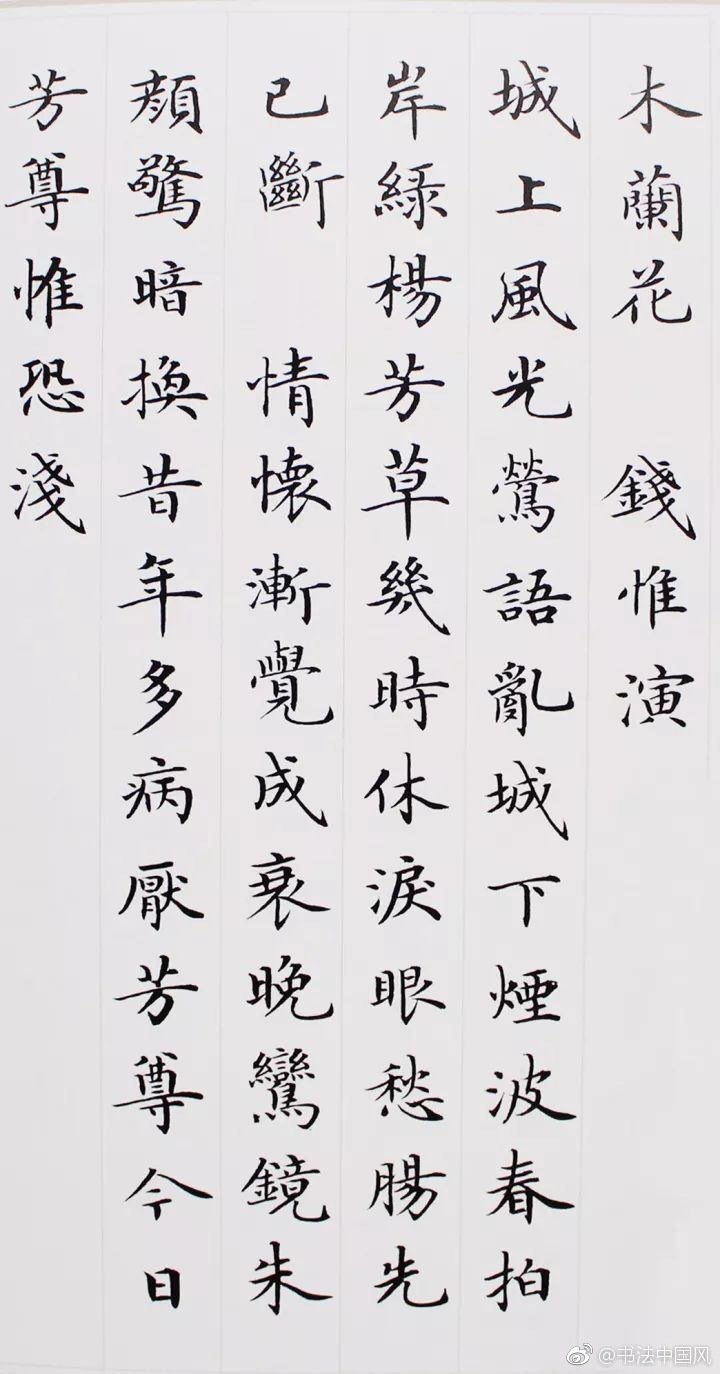 木蘭花 錢惟演
城上風光鶯語亂城下煙波春拍
岸綠楊芳草幾時休淚眼愁腸先
已斷 情懷漸覺成衰晚鸞鏡朱
顏驚暗換昔年多病厭芳尊今日
芳尊惟恐淺
@书法中国风